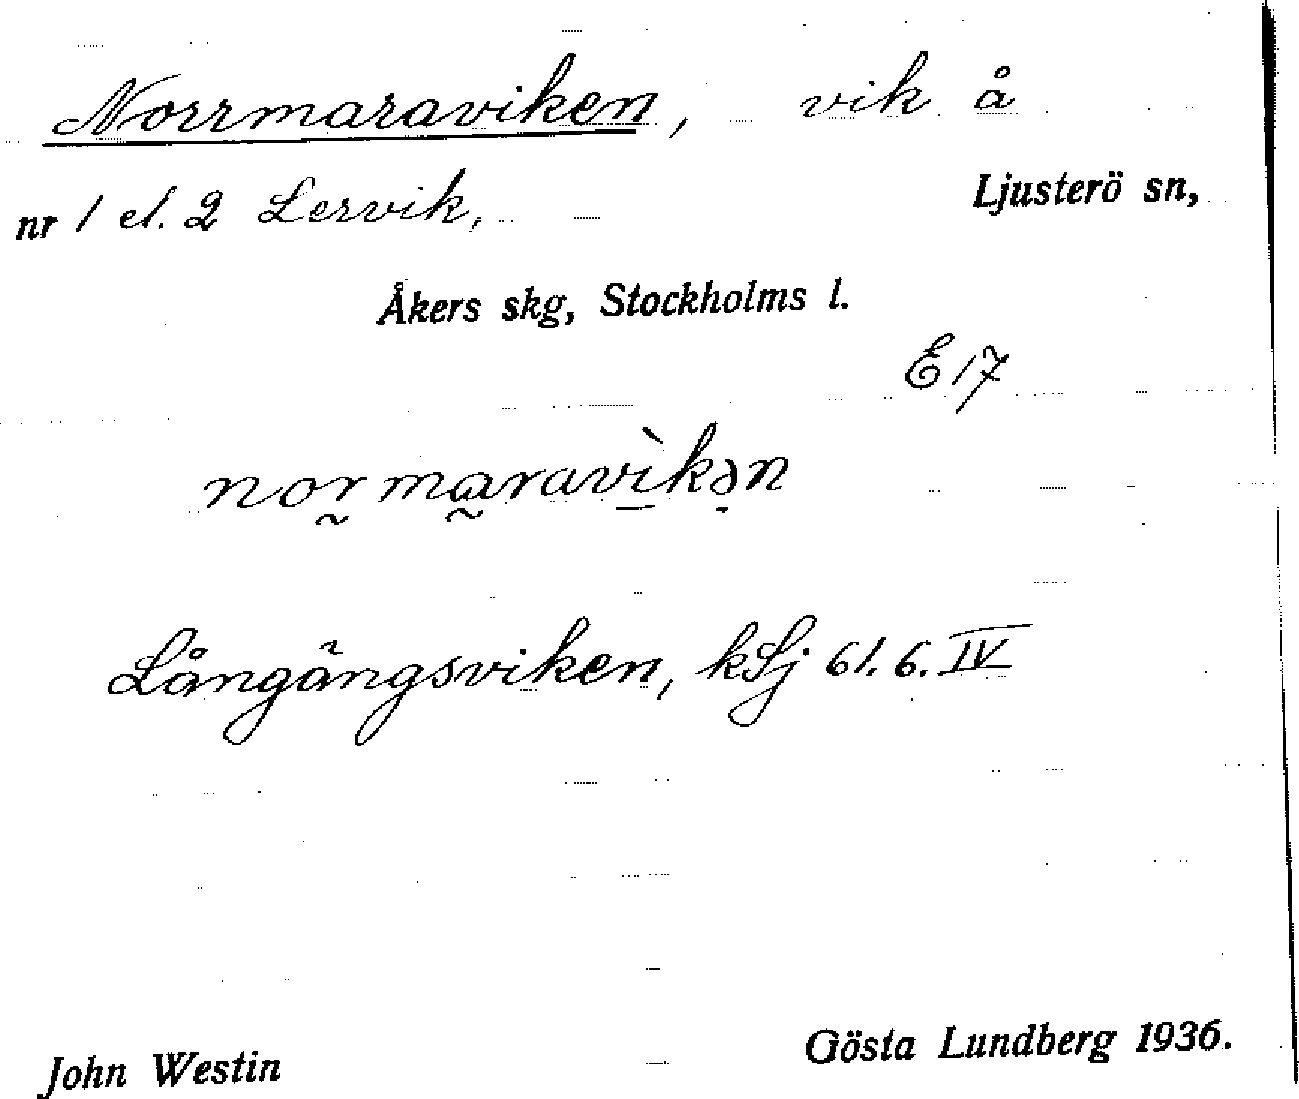 Norrmaraviken, vik å
nr 1 el. 2 Lervik, Ljusterö sn,
Åkers skg, Stockholms l.
E 17
nor̰ma̰ravì̱kə̣n
Långångsviken, kSj 61.6. IV
John Westin Gösta Lundberg 1936.